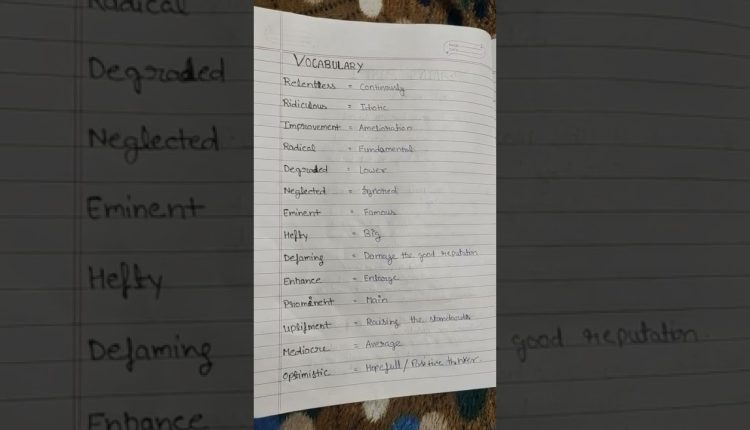 VOCABULARY
Relentless = Continously
Ridiculous = Idiotic
Improvement = Amelioration
Radical = Fundamental
Degraded = Lower
Neglected = Ignored
Eminent = Famous
Hefty = Big
Defaming = Damage the good reputation
Enhance = Enlarge
Prominent = Main
Upliftment = Raising the standards
Mediocre = Average
Optimistic = Hopefull / Positive thinker.
Radical
Degraded
Neglected
Eminent
Hefty
Defaming
Enhance
good reputation.